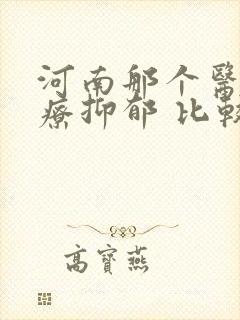 河南那个醫
療抑郁 比較
高寶燕